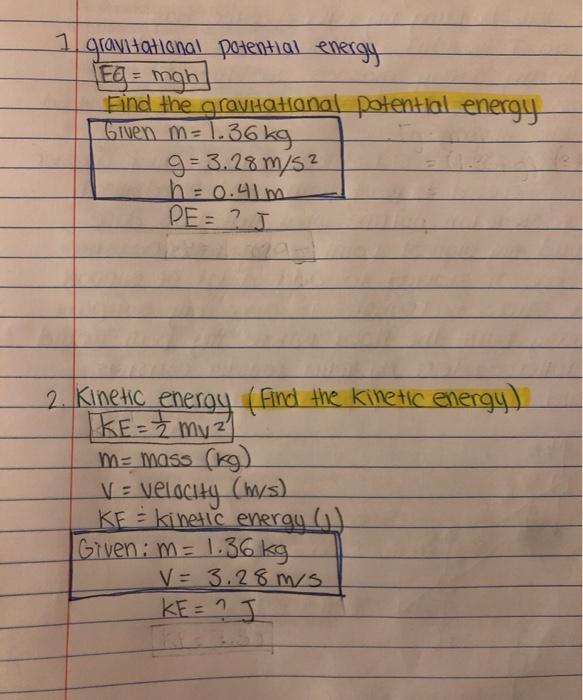 1. gravitational potential energy
Eg = mgh
Find the gravitational potential energy
Given m = 1.36 kg
g = 3.28 m/s²
h = 0.41 m
PE = ? J
2. Kinetic energy (Find the kinetic energy)
KE = ½ mv²
m = mass (kg)
v = velocity (m/s)
KE = kinetic energy (J)
Given: m = 1.36 kg
V = 3.28 m/s
KE = ? J